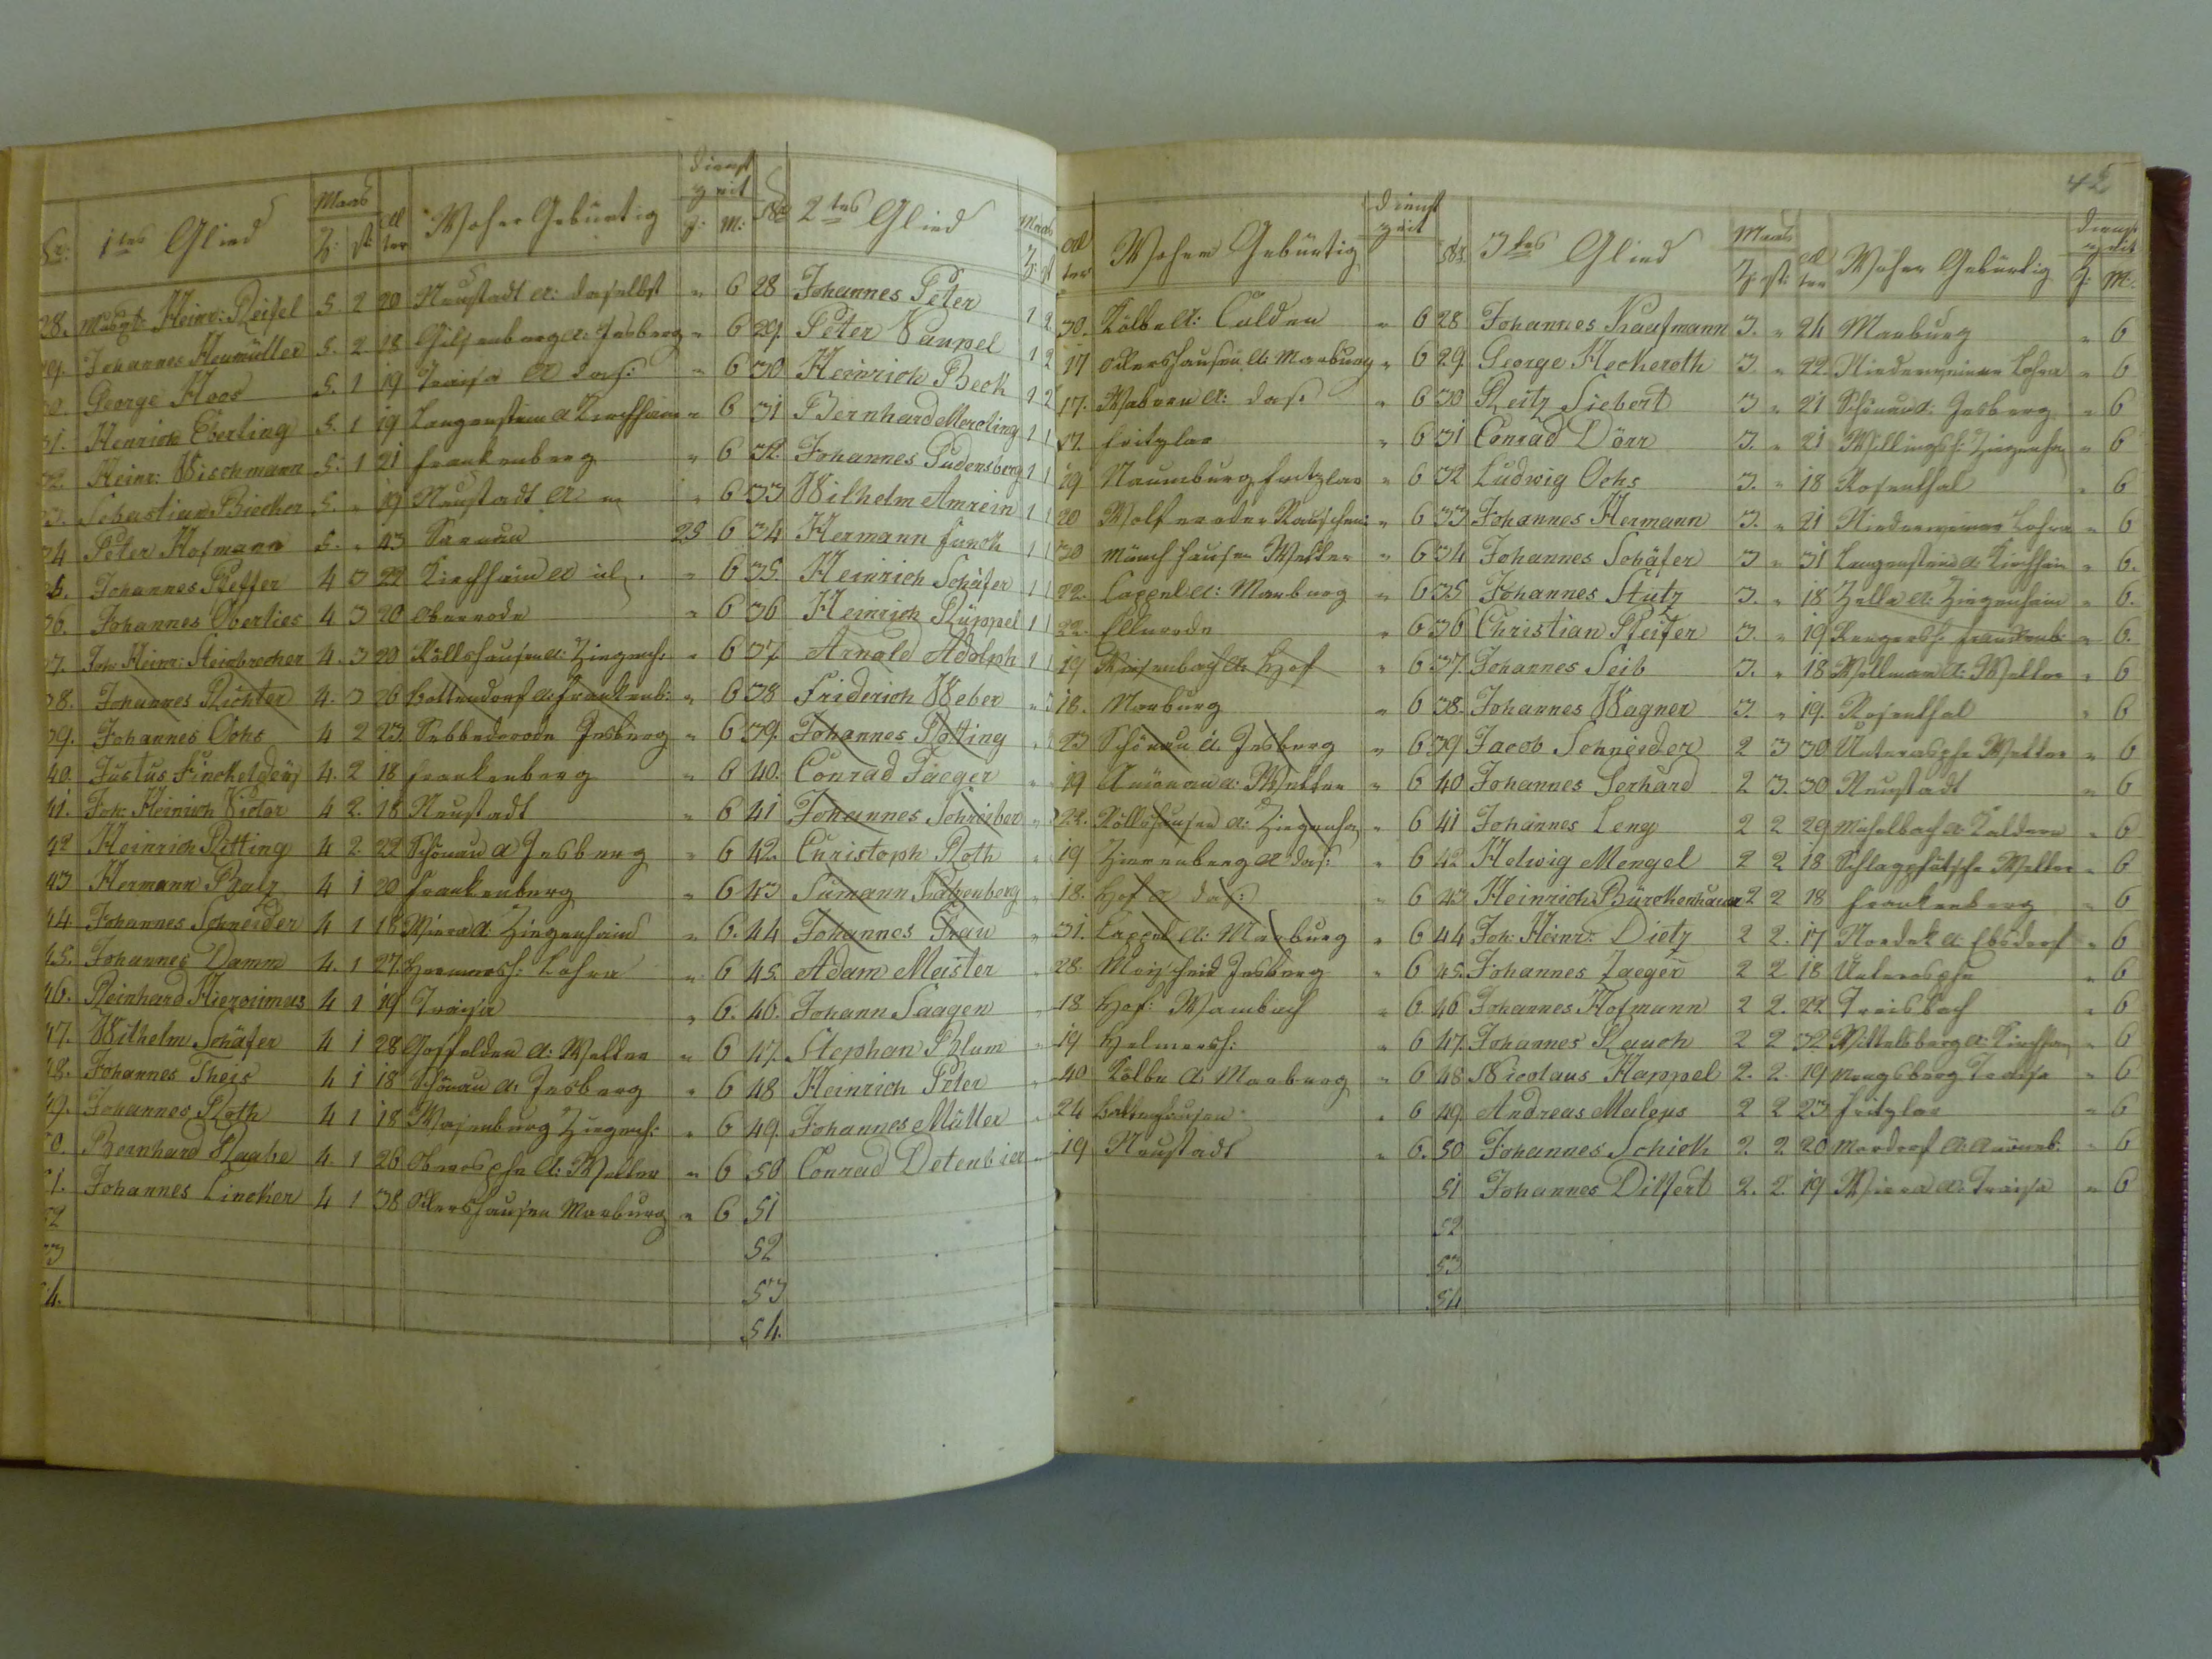 42
No: 1tes Glied Maas Z: st: Alter Woher Gebürtig Dienstzeit J: M: No 2tes Glied Maas Z: st
Alter Woher Gebürtig Dienstzeit No: 3tes Glied Maas Z: st: Alter Woher Gebürtig Dienstzeit J: M:
28. Heinr: Reisel 5. 2 20 Neustadt A: daselbst " 6 28 Johannes Peter 1 2 30. Kölbe A: Calden " 6 28 Johannes Kaufmann 3. " 24 Marburg " 6
29. Johannes Heumüller 5. 2 18 Gilsenberg A: Jesberg " 6 29. Peter Vaupel 1 2 17 Ockershausen A: Marburg " 6 29. George Heckeroth 3. " 22 Niederweimar Lohra " 6
30. George Hoos 5. 1 19 Traisa A das: " 6 30 Heinrich Beck 1 2 17. Wabern A: das: " 6 30 Reitz Siebert 3 " 21 Schönau A: Jesberg " 6
31. Henrich Eberling 5. 1 19 Langenstein A Kirchhain " 6 31 Bernhard Merding 1 1 17. Fritzlar " 6 31 Conrad Dörr 3. " 21 Willingsh: Ziegenhn " 6
32. Heinr: Wischmann 5. 1 21 Frankenberg " 6 32. Johannes Gudensberg 1 1 29 Naumburg Fritzlar " 6 32 Ludwig Ochs 3. " 18 Rosenthal " 6
33. Sebastian Biecker 5. " 19 Neustadt A " 6 33 Wilhelm Amrein 1 1 20 Wolferode Rauschenb: " 6 33 Johannes Hermann 3. " 21 Niederweimar Lohra " 6
34 Peter Hofmann 5. " 43 Sarnau 25 6 34 Hermann Funck 1 1 30 Münchhausen Wetter " 6 34 Johannes Schäfer 3 " 31 Langenstein A: Kirchhain " 6.
35. Johannes Peffer 4 3 22 Kirchhain A " 6 35. Heinrich Schäfer 1 1 22. Cappel A: Marburg " 6 35 Johannes Stutz 3. " 18 Zella A: Ziegenhain " 6.
36. Johannes Oberlies 4 3 20 Oberrode " 6 36 Heinrich Rüppel 1 1 22. Ellnrode " 6 36 Christian Pfeifer 3. " 19 Rengersh: Frankenb: " 6.
37. Joh: Heinr: Steinbrecher 4. 3 20 Röllshausen A: Ziegenh: " 6 37. Arnold Adolph 1 1 19 Reisenbach A: Hof " 6 37. Johannes Seib 3. " 18 Wollmar A: Wetter " 6
38. Johannes Richter 4. 3 26 Bottendorf A: Frankenb: " 6 38 Friderich Weber " 3 18. Marburg " 6 38. Johannes Wagner 3. " 19. Rosenthal " 6
39. Johannes Ochs 4 2 23. Sebbederode Jesberg " 6 39. Johannes Rötting " 23 Schönau A. Jesberg " 6 39 Jacob Schneider 2 3 30 Unterosphe Wetter " 6
40. Justus Finckeldey 4. 2 18 Frankenberg " 6 40. Conrad Jaeger " 19 Amönau A: Wetter " 6 40 Johannes Gerhard 2 3. 30 Neustadt " 6
41. Joh: Heinrich Vietor 4 2. 18 Neustadt " 6 41 Johannes Schreiber " 22. Röllshausen A: Ziegenhn " 6 41 Johannes Leng 2 2 29 Michelbach A: Caldern " 6
42 Heinrich Rötting 4 2. 22 Schönau A Jesberg " 6 42. Christoph Roth " 19 Zierenberg A das: " 6 42 Helwig Mengel 2 2 18 Schlagpfütsche Wetter " 6
43 Hermann Balz 4 1 20 Frankenberg " 6 43 Sümann Katzenberg " 18. Hof A das: " 6 43 Heinrich Bürckenhauer 2 2 18 Frankenberg " 6
44. Johannes Schneider 4 1 18 Wiera A. Ziegenhain " 6. 44 Johannes Grau " 31. Cappel A: Marburg " 6 44 Joh: Heinr: Dietz 2 2. 17 Nordek A: Ebsdorf " 6
45. Johannes Damm 4. 1 27. Hermersh: Lohra " 6 45. Adam Meister " 28. Moischeid Jesberg " 6 45. Johannes Jaeger 2 2 18 Unterosphe " 6
46. Reinhard Hierosimus 4 1 19 Traisa " 6. 46. Johann Saagen " 18 Hof: Wambach " 6. 46 Johannes Hofmann 2 2. 22 Treisbach " 6
47. Wilhelm Schäfer 4 1 28 Gossfelden A: Wetter " 6 47. Stephan Blum " 19 Helmersh: " 6 47. Johannes Rauch 2 2 32 Wittelsberg A: Kirchhain " 6
48. Johannes Theis 4 1 18 Schönau A. Jesberg " 6 48 Heinrich Peter " 40 Kölbe A. Marburg " 6 48 Nicolaus Happel 2. 2 19 Mengsberg Traisa " 6
49. Johannes Roth 4 1 18 Wasenburg Ziegenh: " 6 49. Johannes Müller " 24 " 6 49. Andreas Maleus 2 2 23 Fritzlar " 6
50. Bernhard Raabe 4. 1 26 Oberosphe A: Wetter " 6 50 Conrad Detenbier " 19 Neustadt " 6. 50 Johannes Schick 2. 2 20 Mardorf A: Amöneb: " 6
51. Johannes Lincker 4 1 38 Ockershausen Marburg " 6 51 51 Johannes Dilfert 2. 2. 19 Wiera A: Traisa " 6
52 52 52
53 53 53
54. 54. 54